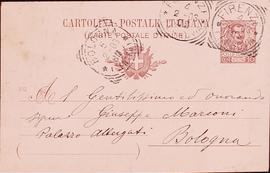 CARTOLINA POSTALE ITALIANA
(CARTE POSTALE D'ITALIE)
FIRENZE
A Il Gentilissimo ed onorando
Signor Giuseppe Marconi
Palazzo Albergati
Bologna